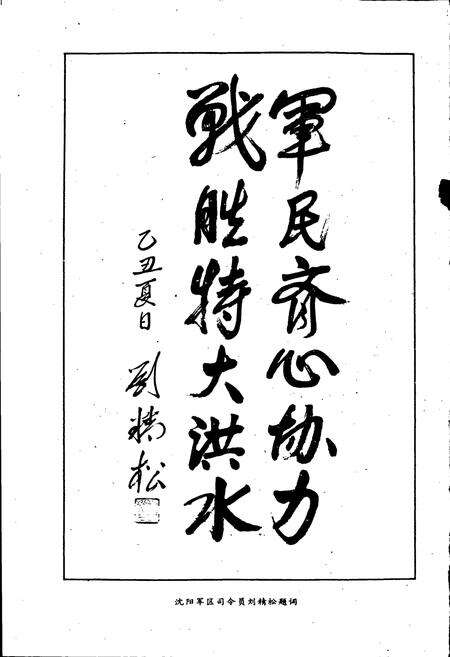 軍民齐心协力
戰胜特大洪水
乙丑夏日
劉精松
沈阳军区司令员刘精松题词